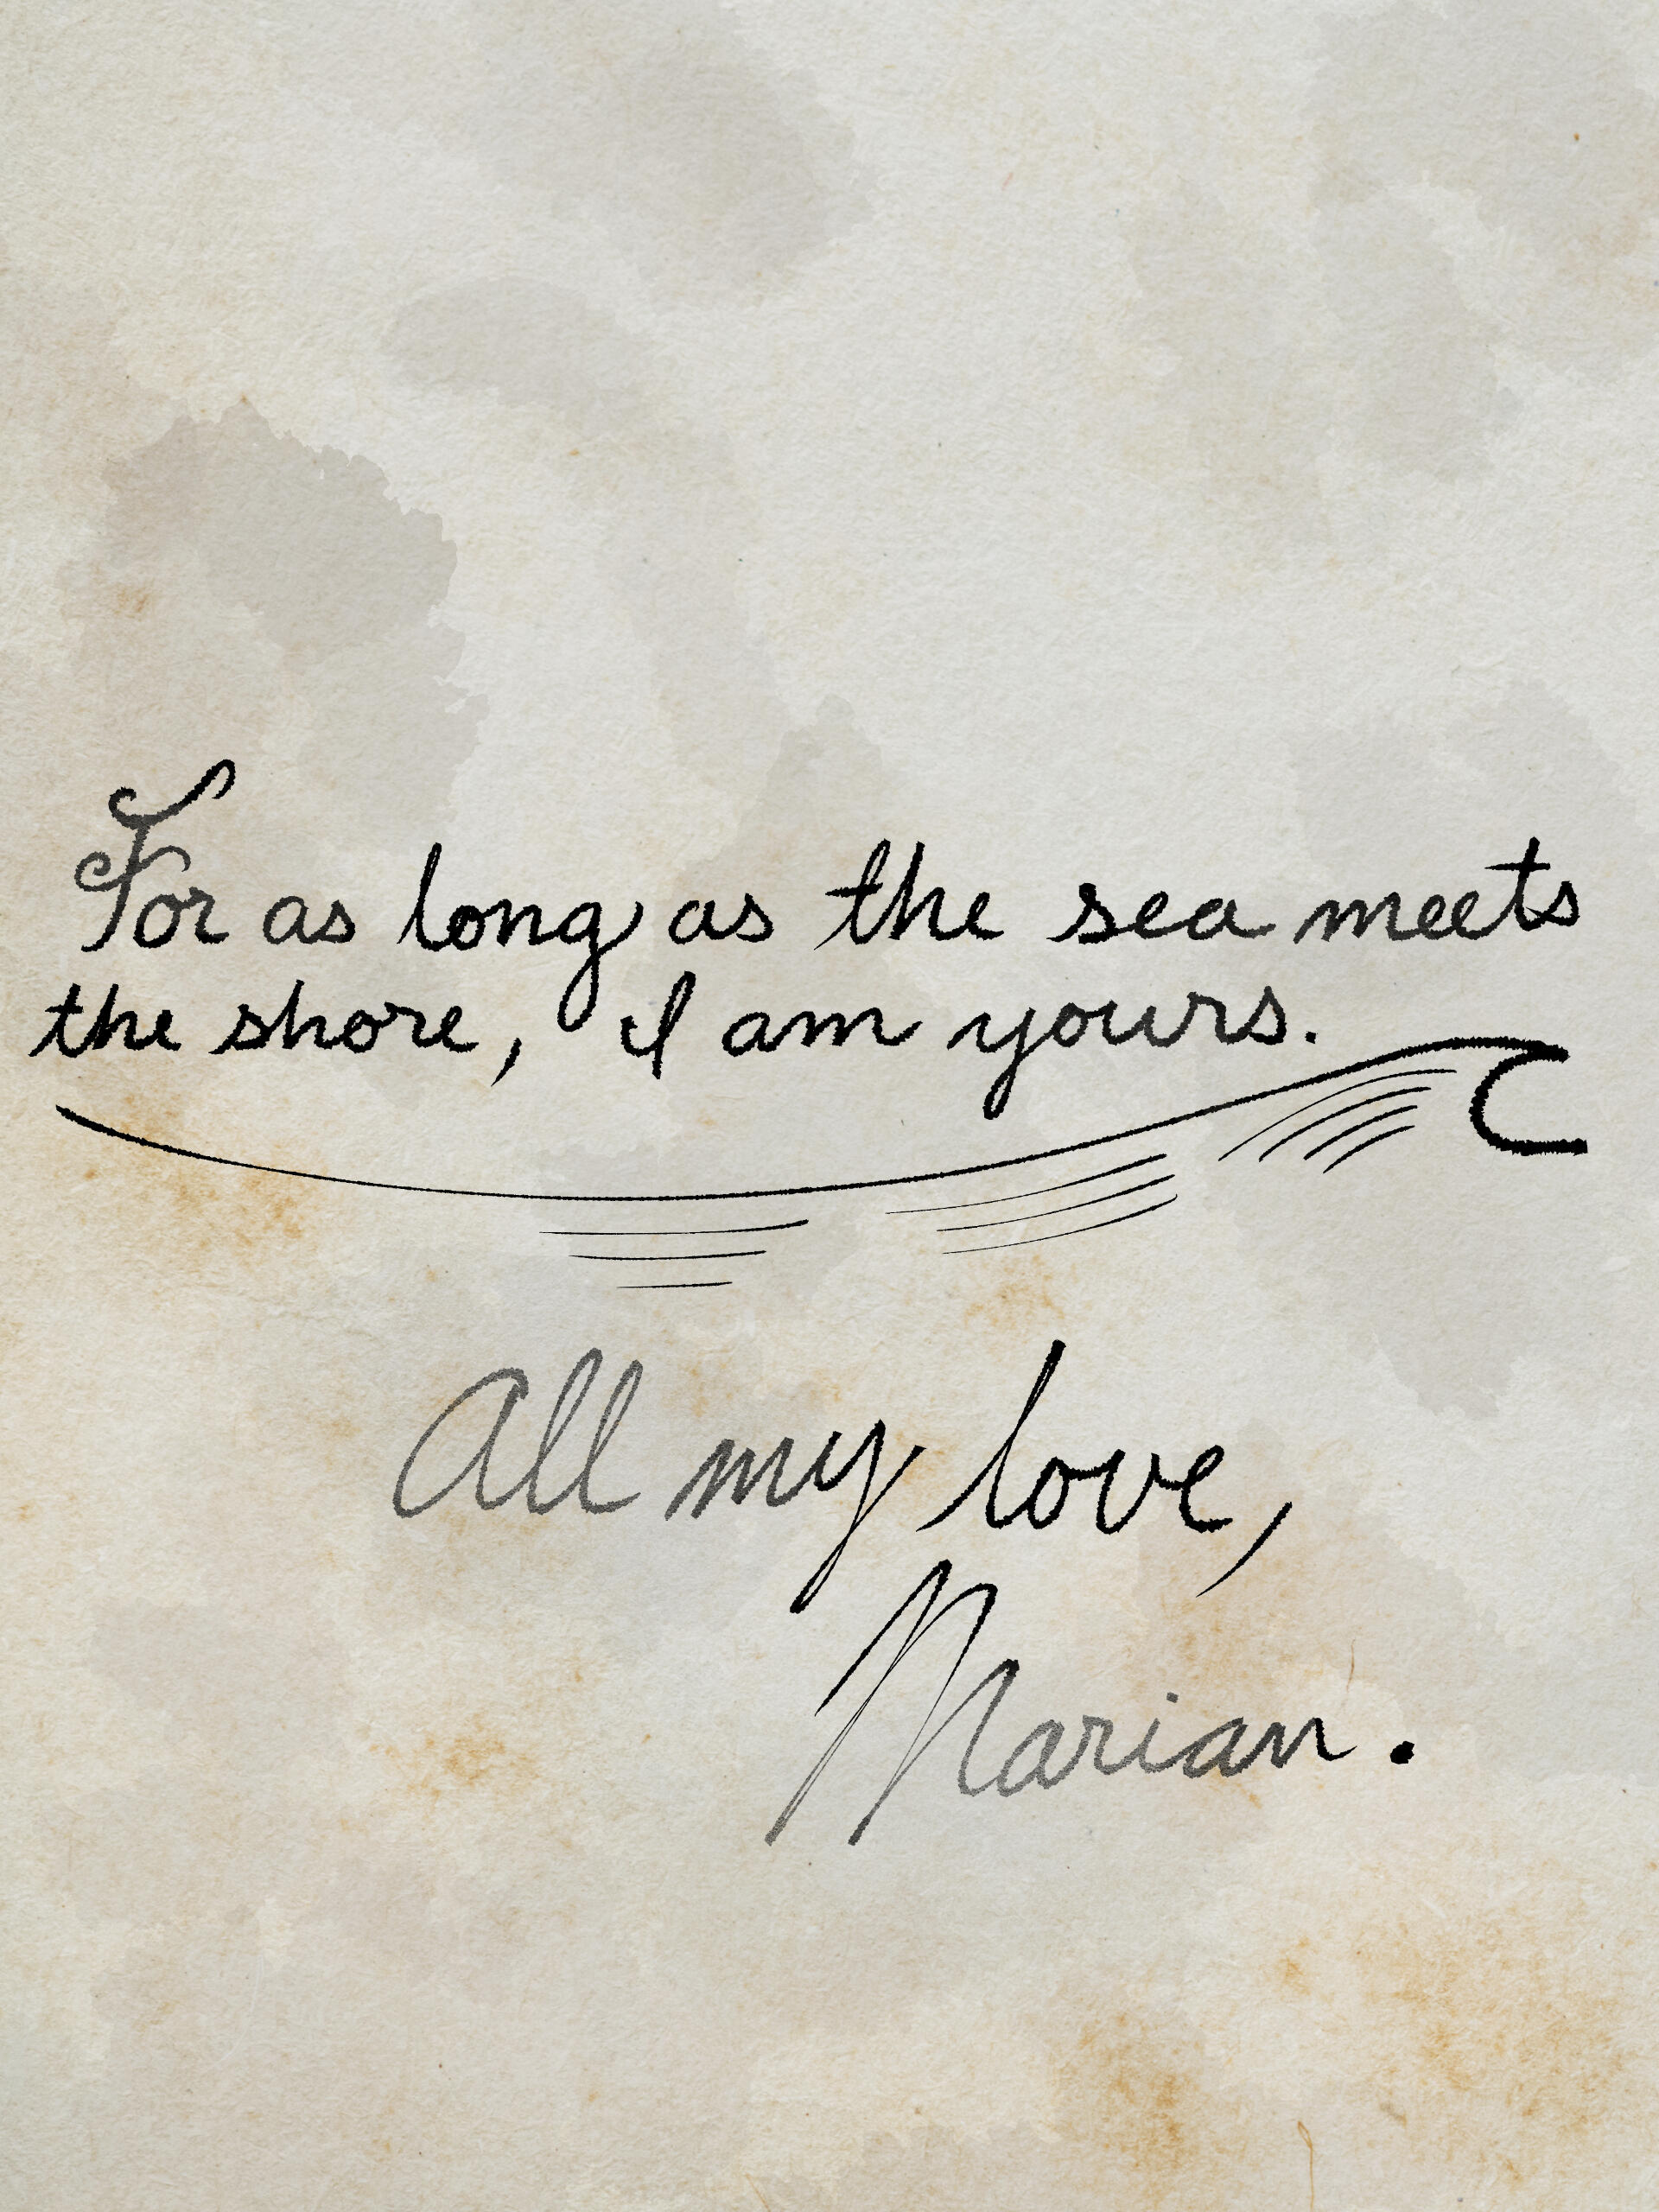 For as long as the sea meets
the shore, I am yours.
All my love,
Marian.